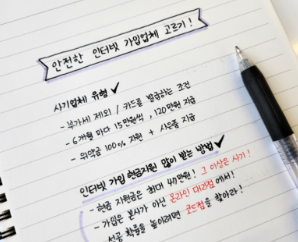 안전한 인터넷 가입업체 고르기!
사기업체 유형 ✓
- 부가세 제외 / 카드를 발급하는 조건
- 6개월 마다 15만원씩, 120만원 지급
- 위약금 100% 지원 + 사은품 지급
인터넷 가입 현금지원 많이 받는 방법 ✓
- 현금 지원금은 최대 47만원! 그 이상은 사기!
- 가입은 본사가 아닌 온라인 대리점에서!
성공 확률을 높이려면 을 찾아라!